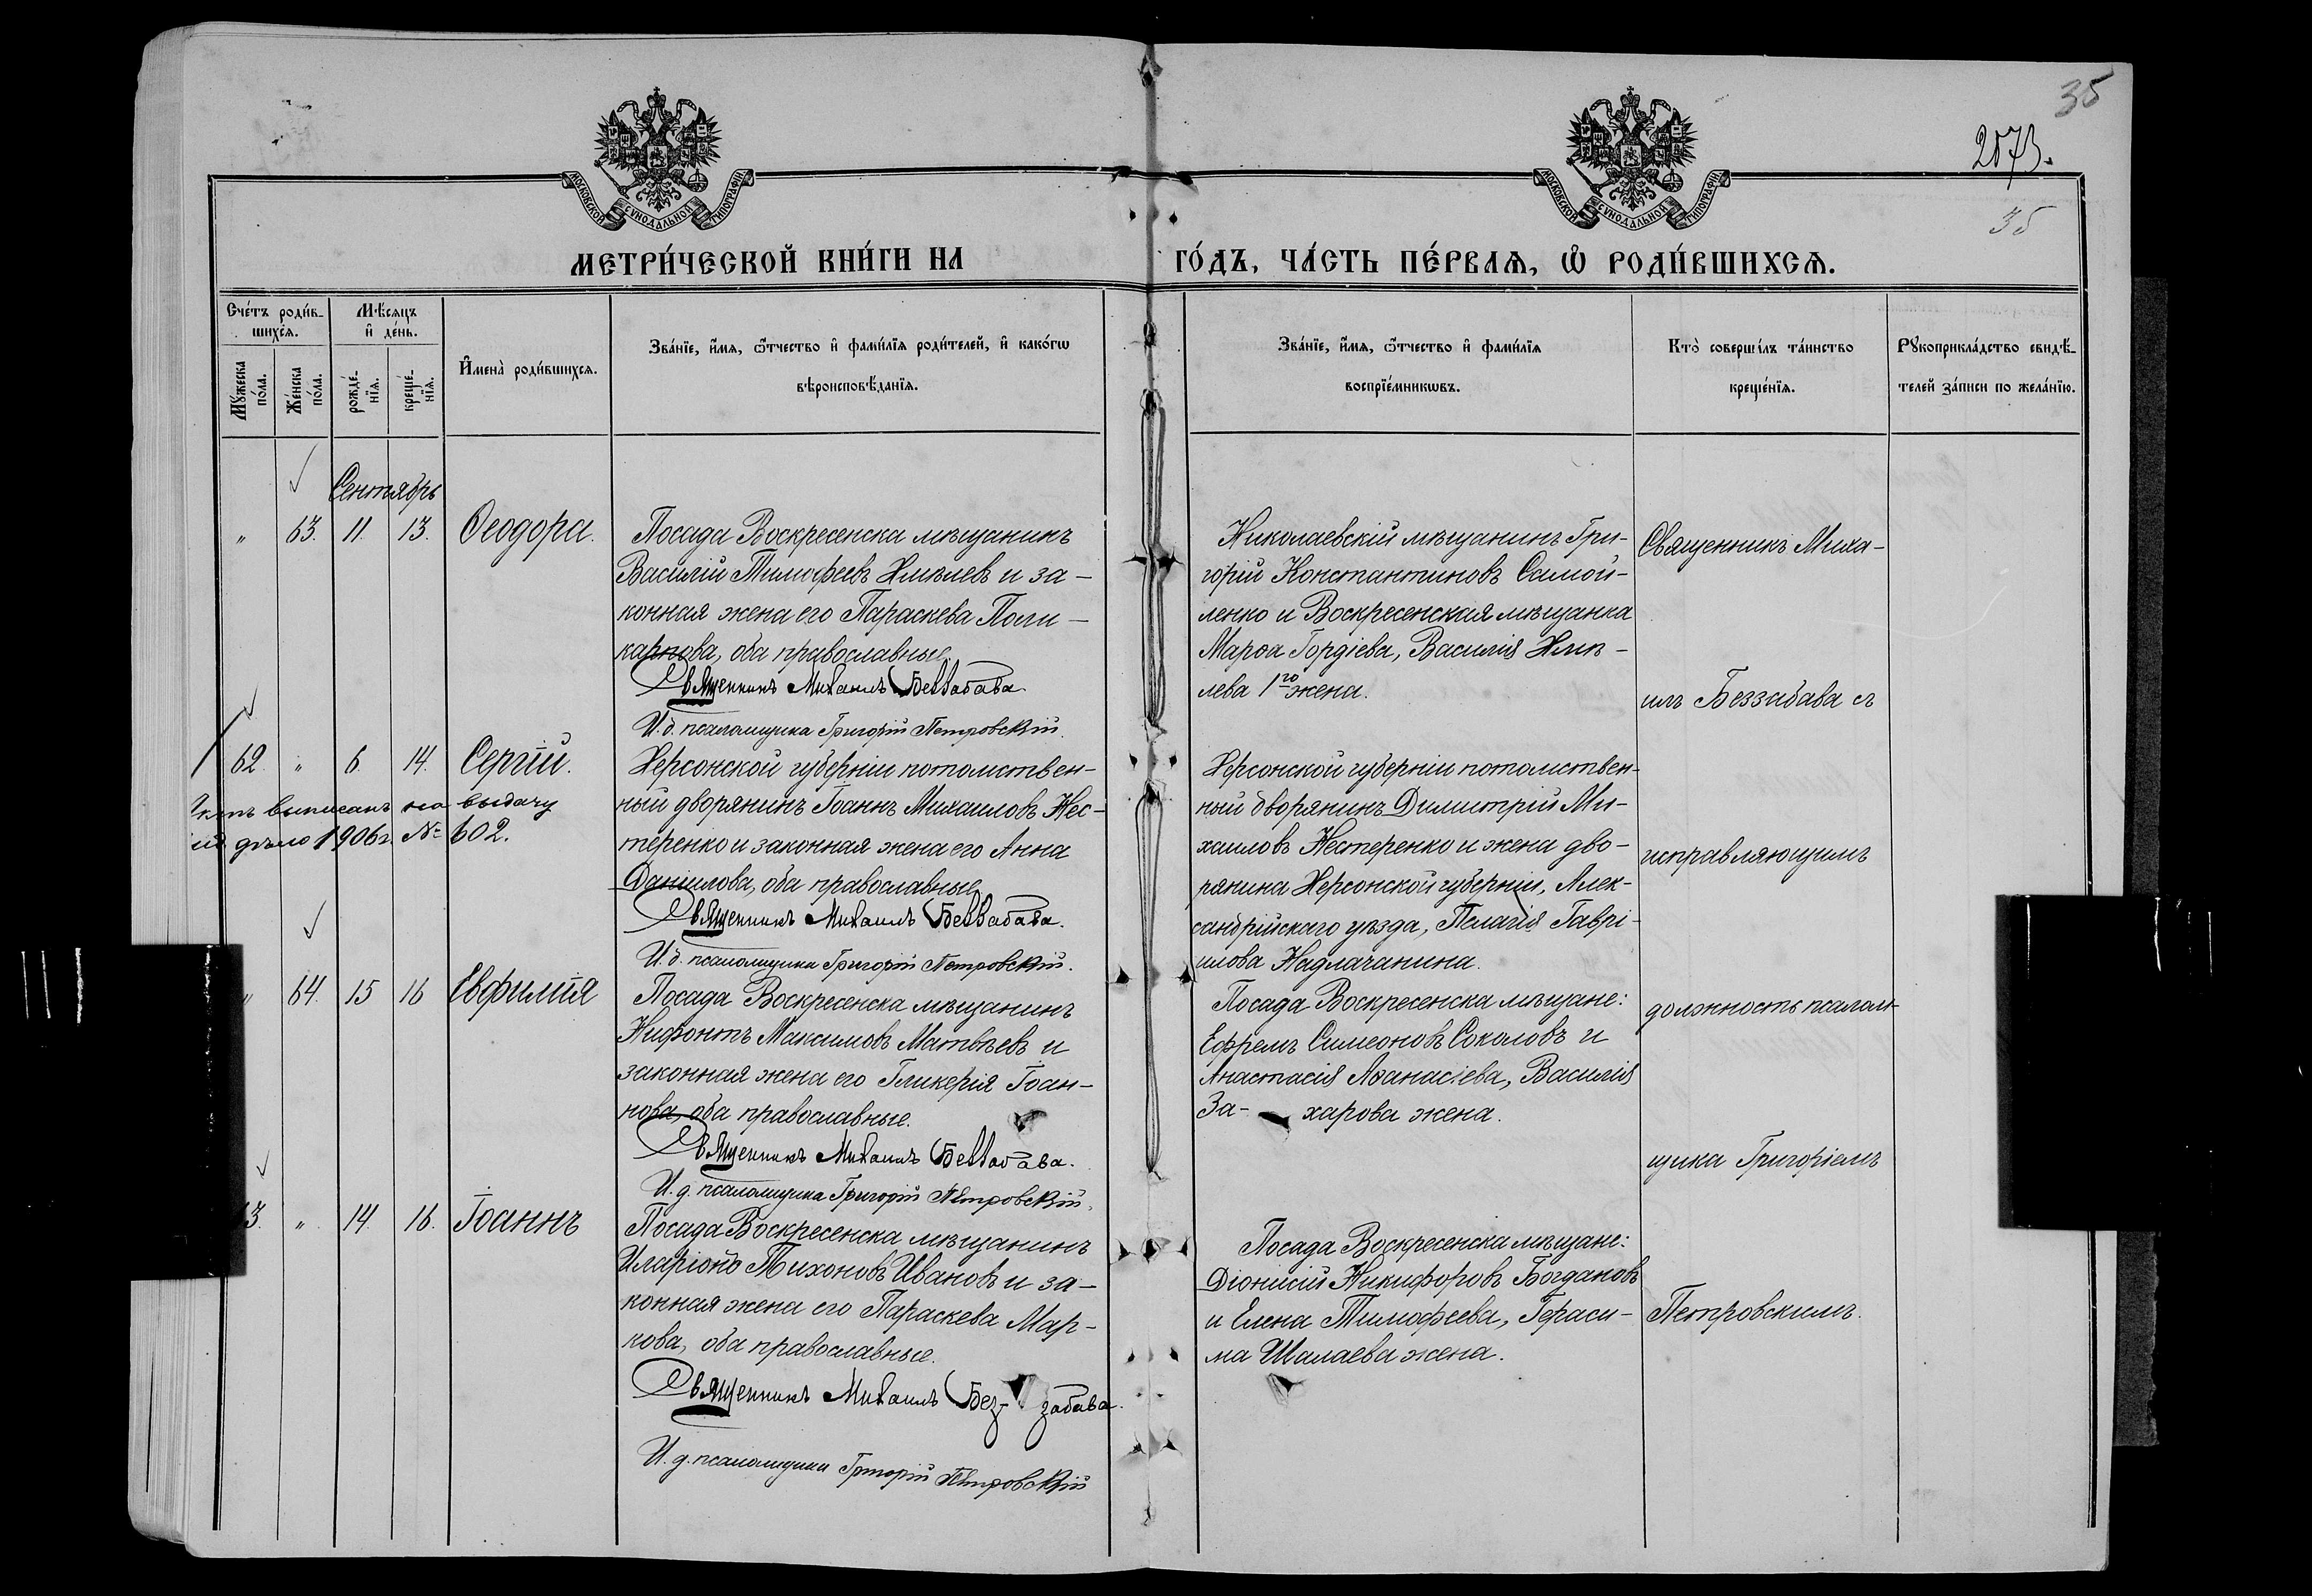 35
2073.
35
МОСКОВСКОЙ СѴНОДАЛЬНОЙ ТИПОГРАФІИ
МОСКОВСКОЙ СѴНОДАЛЬНОЙ ТИПОГРАФІИ
МЕТРИ́ЧЕСКОЙ КНИ́ГИ НА
ГО́ДЪ, ЧА́СТЬ ПЕ́РВАѦ, Ѽ РОДИ́ВШИХСѦ.
Сче́тъ роди́в-
шихсѧ.
Мѣ́сѧцъ
и҆ де́нь.
Мꙋ́жеска по́ла.
Же́нска по́ла.
рожде́-нїѧ.
креще́-нїѧ.
И҆мена̀ роди́вшихсѧ.
Зва́нїе, и҆́мѧ, ѻ҆́тчество и҆ фами́лїѧ роди́телей, и҆ како́гѡ
вѣроисповѣ́данїѧ.
Зва́нїе, и҆́мѧ, ѻ҆́тчество и҆ фами́лїѧ
воспрїе́мникѡвъ.
Кто̀ соверши́лъ та́инство
креще́нїѧ.
Рꙋкоприкла́дство свидѣ́-
телей за́писи по жела́нїю.
Сентябрь
„ 63. 11. 13. Ѳеодора.
Посада Воскресенска мѣщанинъ
Василій Тимофеевъ Хмѣлевъ и за-
конная жена его Параскева Поли-
карпова, оба православные.
Священникъ Михаилъ Беззабава.
И. д. псаломщика Григорій Петровскій.
Николаевскій мѣщанинъ Гри-
горій Константиновъ Самой-
ленко и Воскресенская мѣщанка
Марѳа Гордіева, Василія Хмѣ-
лева 1го жена.
Священникъ Миха-
илъ Беззабава съ
62. „ 6. 14. Сергій.
выписанъ на выдачу
дѣло 1906 г. № 602.
Херсонской губерніи потомствен-
ный дворянинъ Іоаннъ Михаиловъ Нес-
теренко и законная жена его Анна
Даніилова, оба православные.
Священникъ Михаилъ Беззабава.
И. д. псаломщика Григорій Петровскій.
Херсонской губерніи потомствен-
ный дворянинъ Димитрій Ми-
хаиловъ Нестеренко и жена дво-
рянина Херсонской губерніи, Алек-
сандрійскаго уѣзда, Пелагія Гаврі-
илова Надлачанина.
исправляющимъ
„ 64. 15 16 Евфимія
Посада Воскресенска мѣщанинъ
Нифонтъ Максимовъ Матвѣевъ и
законная жена его Гликерія Іоан-
нова, оба православные.
Священникъ Михаилъ Беззабава.
И. д. псаломщика Григорій Петровскій.
Посада Воскресенска мѣщане:
Ефремъ Симеоновъ Соколовъ и
Анастасія Аѳанасіева, Василія
За- харова жена.
должность псалом-
щика Григоріемъ
3. „ 14. 16. Іоаннъ
Посада Воскресенска мѣщанинъ
Иларіонъ Тихоновъ Ивановъ и за-
конная жена его Параскева Мар-
кова, оба православные.
Священникъ Михаилъ Без- забава.
И. д. псаломщика Григорій Петровскій
Посада Воскресенска мѣщане:
Діонисій Никифоровъ Богдановъ
и Елена Тимофеева, Гераси-
ма Шалаева жена.
Петровскимъ.